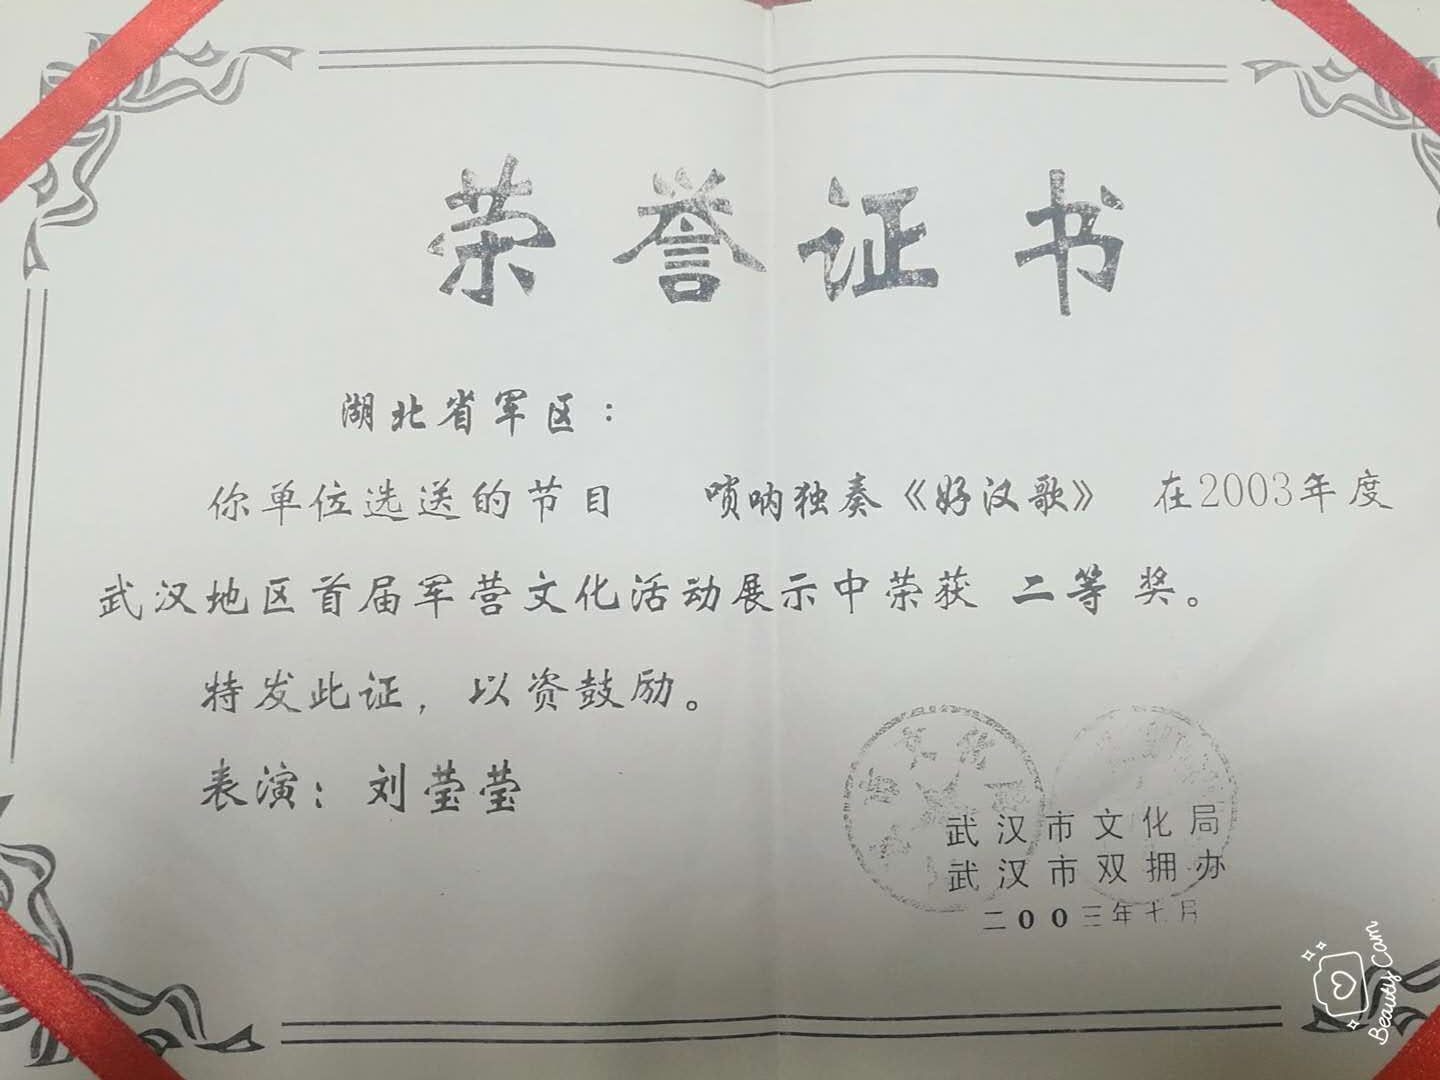 荣誉证书
湖北省军区：
你单位选送的节目 唢呐独奏《好汉歌》 在2003年度
武汉地区首届军营文化活动展示中荣获 二等 奖。
特发此证，以资鼓励。
表演：刘莹莹
武汉市文化局
武汉市双拥办
二00三年七月
Beauty Cam